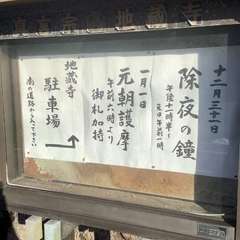 十二月三十一日
除夜の鐘
午後十一時半〜
元旦午前一時
一月一日
元朝護摩
午前六時より
御札加持
地蔵寺
駐車場
南の道路から入って下さい